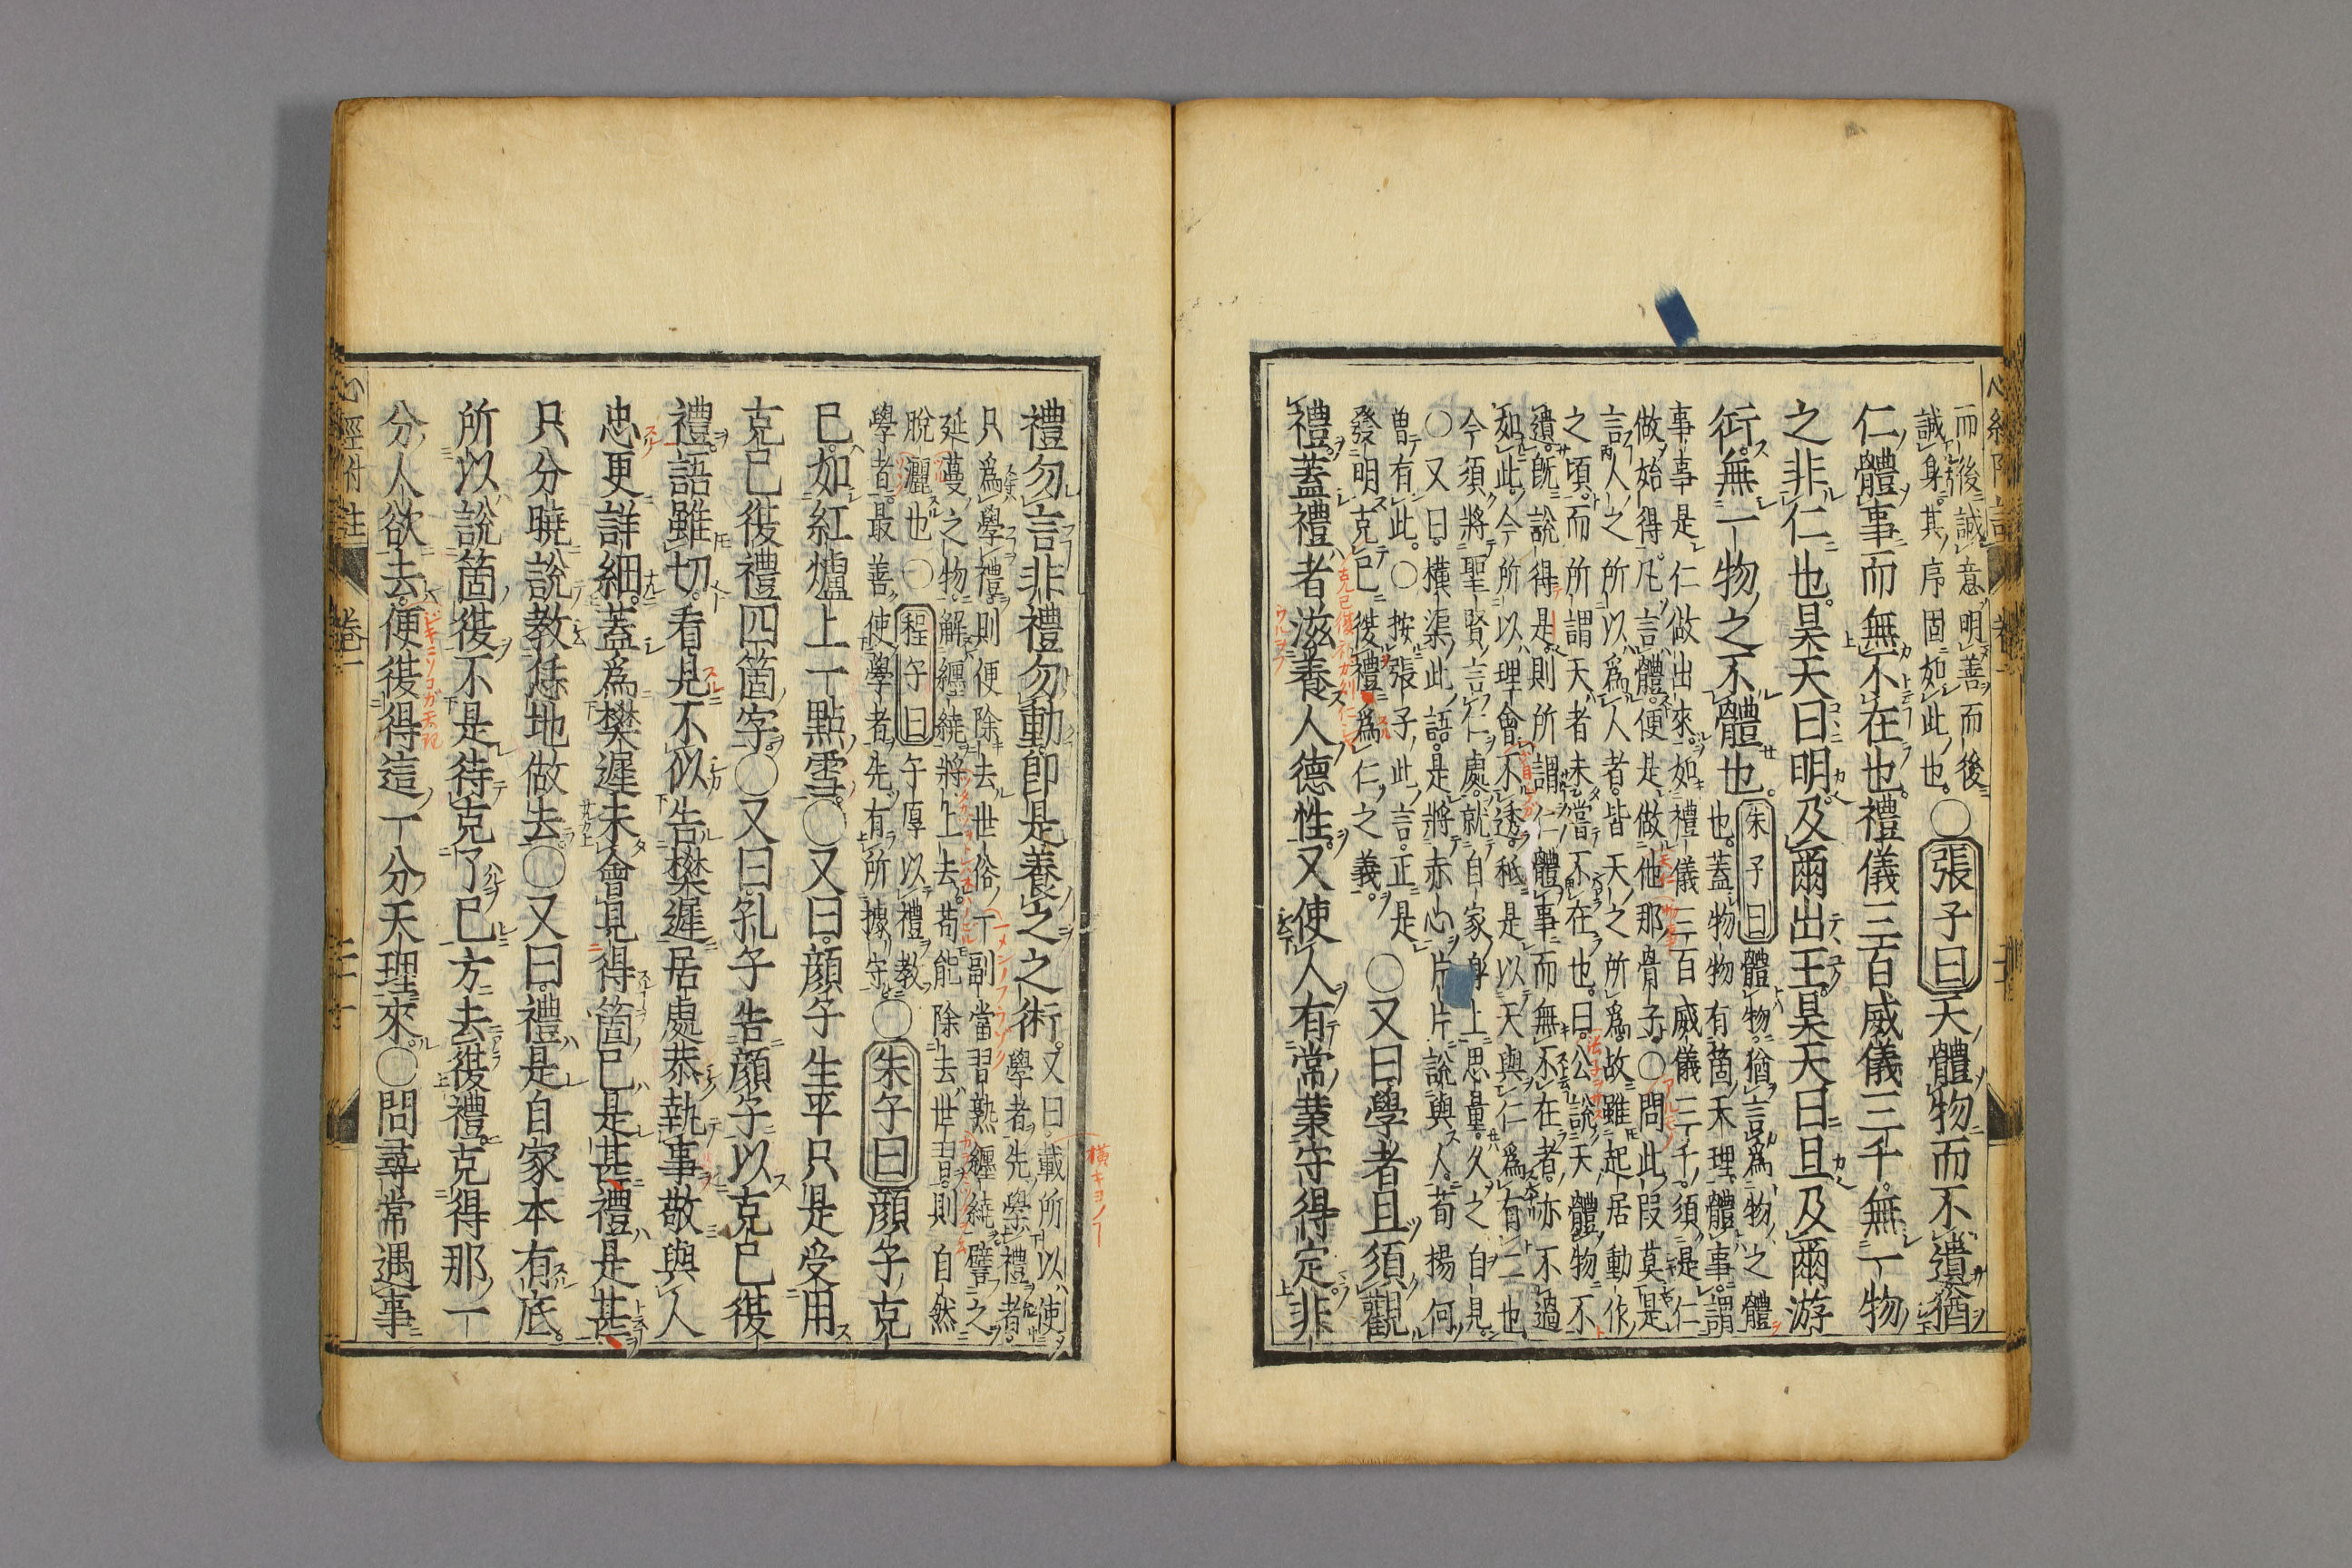 而後誠意明善而後
誠身其序固如此也○張子曰天體物而不遺猶
仁體事而無不在也禮儀三百威儀三千無一物
之非仁也昊天曰明及爾出王昊天曰旦及爾游
衍無一物之不體也朱子曰體物猶言爲物之體
也蓋物物有箇天理體事謂
事事是仁做出來如禮儀三百威儀三千須是仁
做始得凡言體便是做他那骨子○問此段莫是
言人之所以爲人者皆天之所爲故雖起居動作
之頃而所謂天者未嘗不在也曰公說天體物不
遺既說得是則所謂仁體事而無不在者亦不過
如此今所以理會不透秪是以天與仁爲有二也
今須將聖賢言仁處就自家身上思量久之自見
○又曰橫渠此語是將赤心片片說與人荀揚何
曽有此○按張子此言正是
發明克己復禮爲仁之義○又曰學者且須觀
禮蓋禮者滋養人德性又使人有常業守得定非
禮勿言非禮勿動卽是養之之術又曰載所以使
學者先學禮者
只爲學禮則便除去世俗一副當習熟纏繞譬之
延蔓之物解纏繞將上去苟能除去世習則自然
脫灑也○程子曰子厚以禮教
學者最善使學者先有所據守○朱子曰顏子克
己如紅爐上一點雪○又曰顏子生平只是受用
克己復禮四箇字○又曰孔子告顏子以克己復
禮語雖切看見不似告樊遲居處恭執事敬與人
忠更詳細蓋爲樊遲未會見得箇己是甚禮是甚
只分曉說教恁地做去○又曰禮是自家本有底
所以說箇復不是待克了己方去復禮克得那一
分人欲去便復得這一分天理來○問尋常遇事
心經附註
卷一